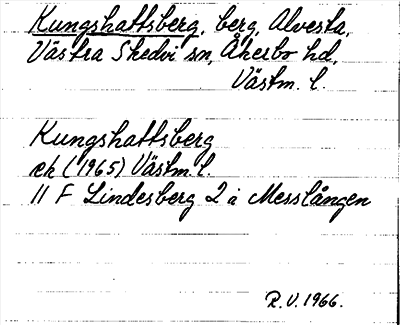 Kungshattsberg, berg, Alvesta,
Västra Skedvi sn, Åkerbo hd,
Västm. l.
Kungshattsberg
ek (1965) Västm. l.
11 F Lindesberg 2 a Messlången
R.V. 1966.